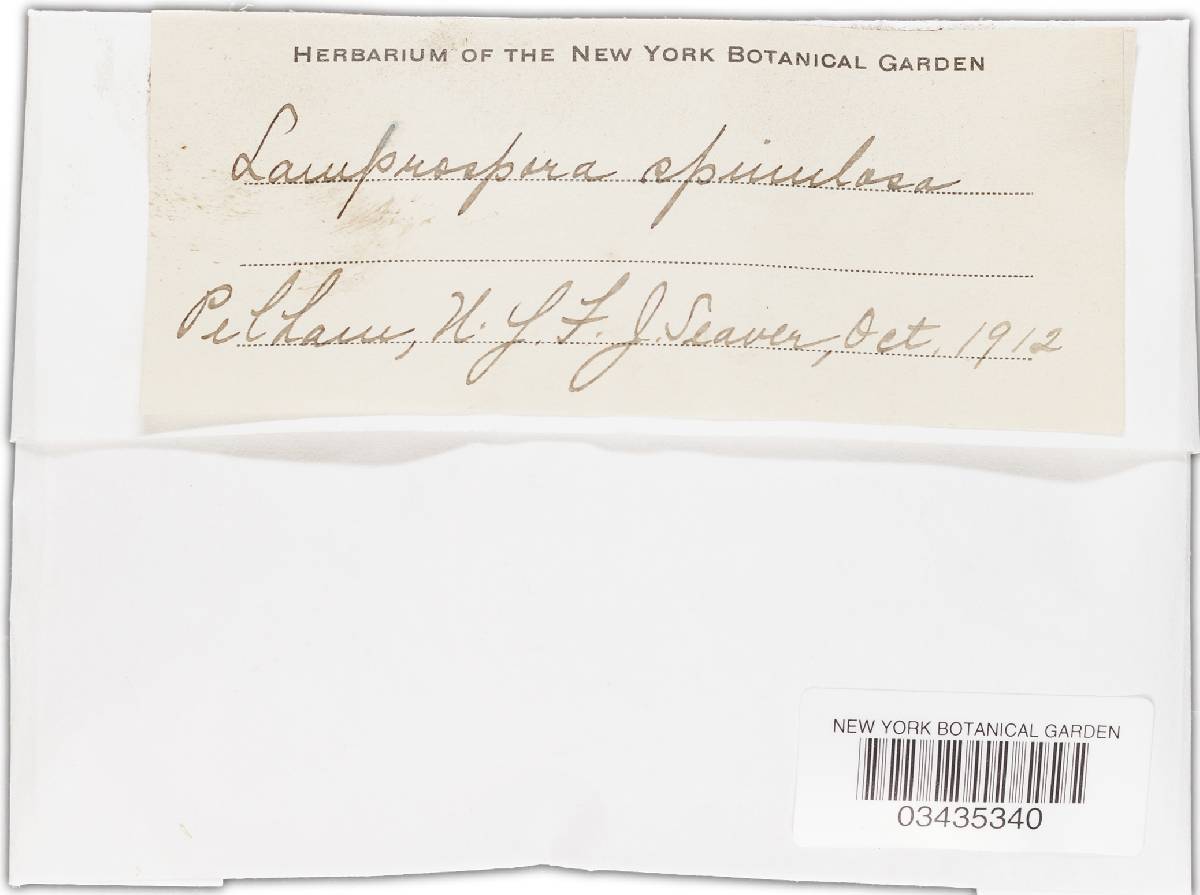 HERBARIUM OF THE NEW YORK BOTANICAL GARDEN
Lamprospora spinulosa
Pelham, N. Y. F. J. Seaver, Oct. 1912
NEW YORK BOTANICAL GARDEN
03435340